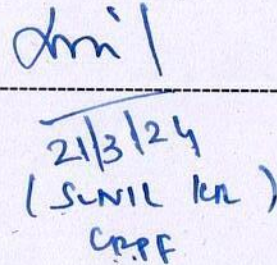 21/3/24
(SUNIL KR)
CRPF